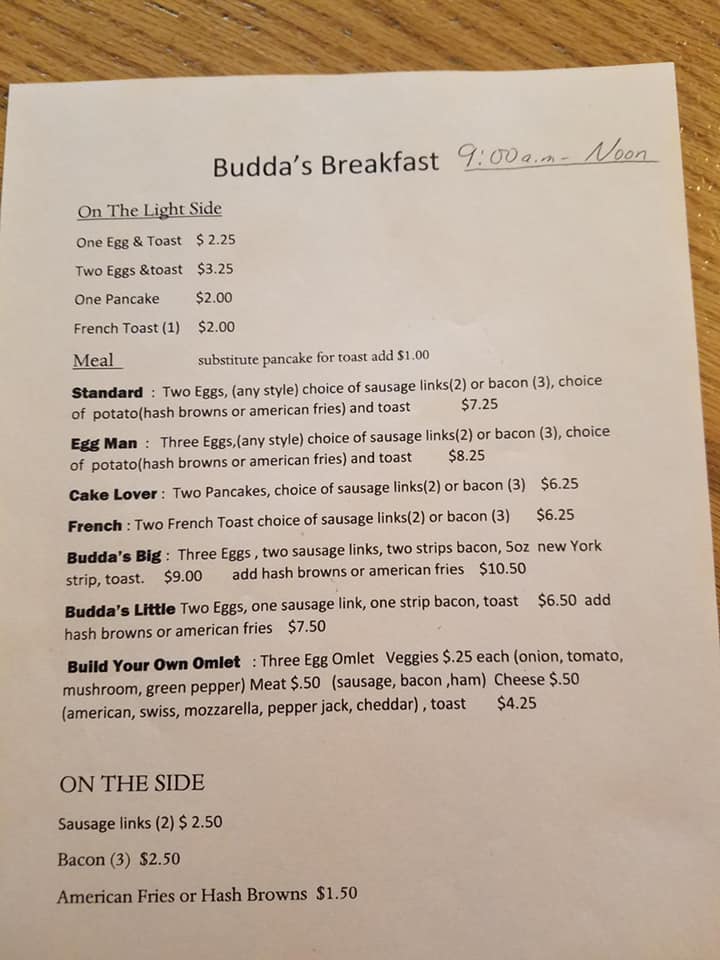 Budda's Breakfast 9:00a.m- Noon
On The Light Side
One Egg & Toast $ 2.25
Two Eggs &toast $3.25
One Pancake $2.00
French Toast (1) $2.00
Meal substitute pancake for toast add $1.00
Standard : Two Eggs, (any style) choice of sausage links(2) or bacon (3), choice
of potato(hash browns or american fries) and toast $7.25
Egg Man : Three Eggs,(any style) choice of sausage links(2) or bacon (3), choice
of potato(hash browns or american fries) and toast $8.25
Cake Lover : Two Pancakes, choice of sausage links(2) or bacon (3) $6.25
French : Two French Toast choice of sausage links(2) or bacon (3) $6.25
Budda's Big : Three Eggs , two sausage links, two strips bacon, 5oz new York
strip, toast. $9.00 add hash browns or american fries $10.50
Budda's Little Two Eggs, one sausage link, one strip bacon, toast $6.50 add
hash browns or american fries $7.50
Build Your Own Omlet : Three Egg Omlet Veggies $.25 each (onion, tomato,
mushroom, green pepper) Meat $.50 (sausage, bacon ,ham) Cheese $.50
(american, swiss, mozzarella, pepper jack, cheddar) , toast $4.25
ON THE SIDE
Sausage links (2) $ 2.50
Bacon (3) $2.50
American Fries or Hash Browns $1.50